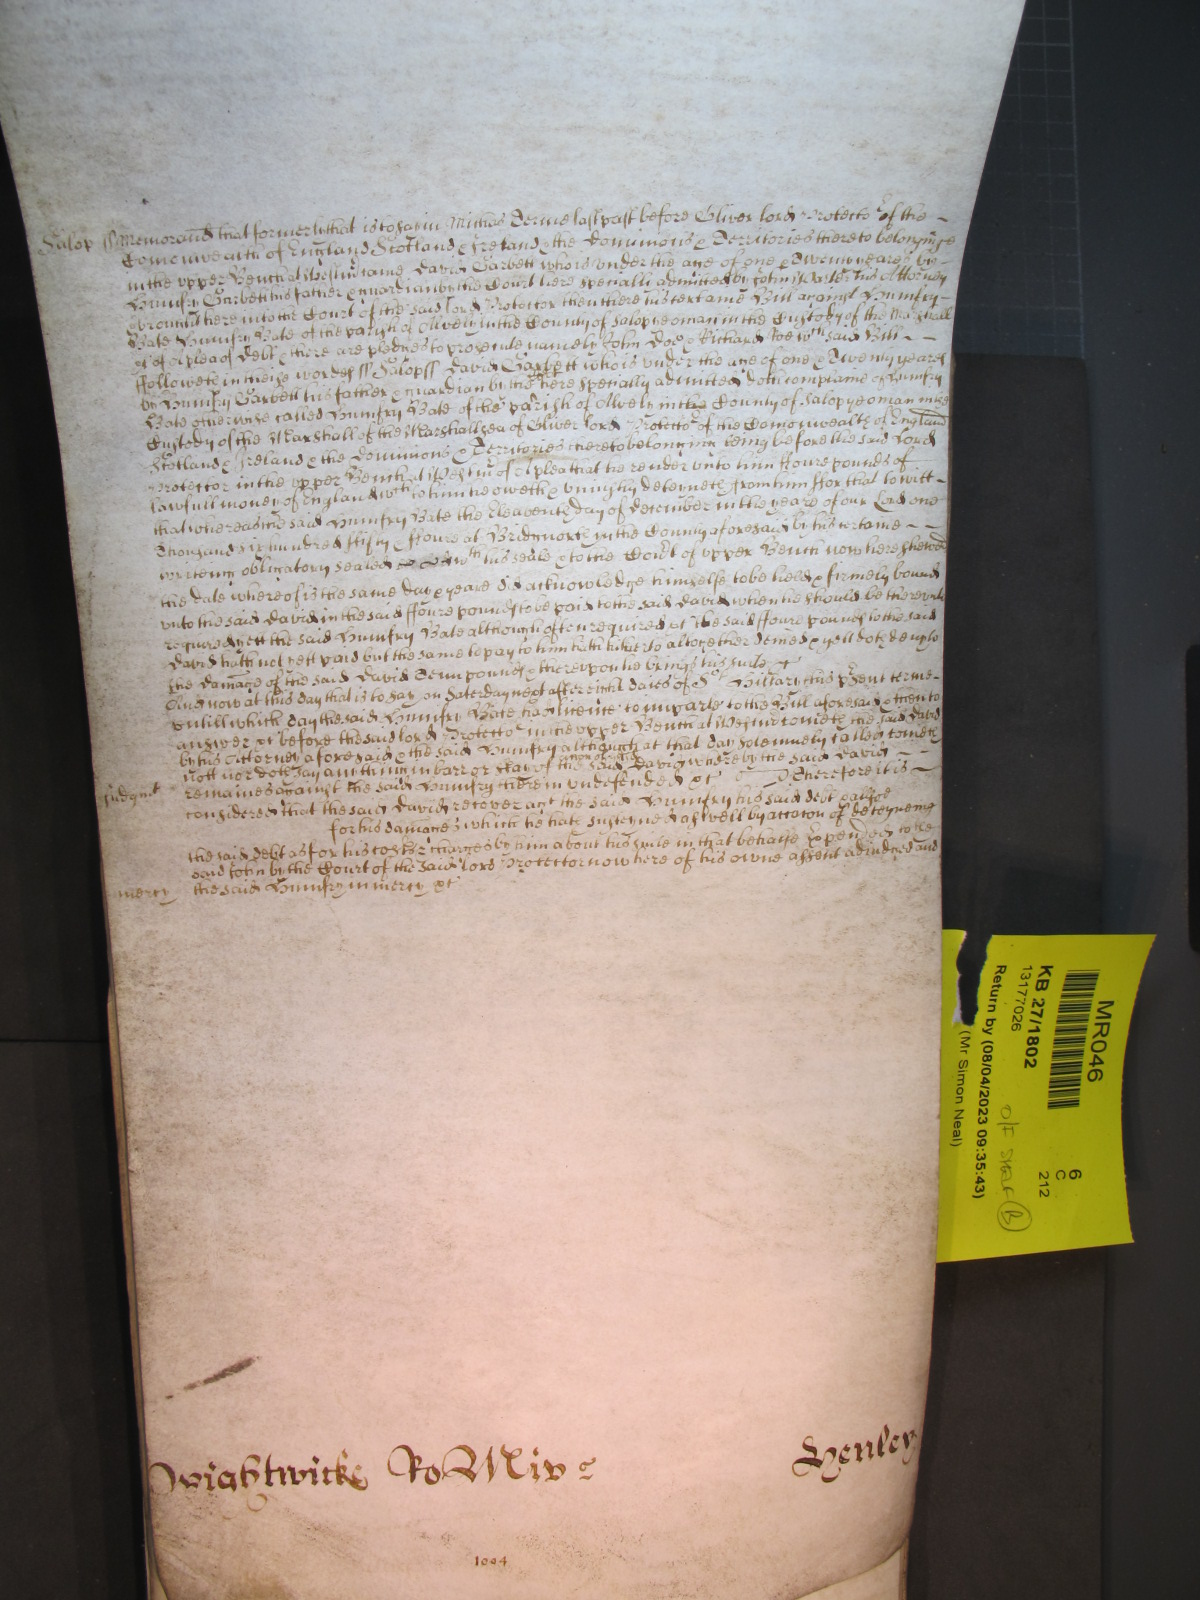 Salop ss Memorand that formerly that is to say in Michas Terme last past before Oliver lord Protector of the
Comonwealth of England Scotland & Ireland & the Dominions & Territories thereto belonginge
in the upper Bench at Westm came David Garbett who is under the age of one & Twenty yeares by
Humfry Garbett his father & guardian by the Court here specially admitted by his Attorney
& brought here into the Court of the said lord Protector then there his certaine Bill against Humfry
Bate Humfry Bate of the parish of Alvely in the County of Salop yeoman in the Custody of the Marshall
&c of A plea of Debt & there are pledges to prosecute namely John Doe & Richard Roe wch said Bill
ffolloweth in theise wordes ss Salop ss David Garbett who is under the age of one & Twenty yeares
by Humfry Garbett his father & guardian by the here specially admitted doth complaine of Humfry
Bate otherwise called Humfry Bate of the parish of Alvely in the County of Salop yeoman in the
Custody of the Marshall of the Marshallsea of Oliver lord Protector of the Comonwealth of England
Scotland & Ireland & the Dominions & Territories thereto belonging being before the said lord
Protector in the upper Bench at Westm of A plea that he render unto him ffoure pounds of
lawfull money of England wch to him he oweth & uniustly deteyneth from him ffor that to witt
that whereas the said Humfry Bate the Eleaventh day of december in the yeare of our Lord one
Thousand six hundred fifty & ffoure at Bridgnorth in the County aforesaid by his certaine
writeing obligatory sealed wth his seale & to the Court of upper Bench now here shewed
the date whereof is the same day & yeare did acknowledge himselfe to be held & firmely bound
unto the said David in the said ffoure pounds to be paid to the said David when he should be thereunto
required yett the said Humfry Bate although often required &c the said ffoure pounds to the said
David hath not yett paid but the same to pay to him hath hitherto altogether denied & yett doth deny to
the damage of the said David Tenn pounds & thereupon he brings his suite &c
And now at this day that is to say on Saterday next after eight daies of St Hillary this psent terme
untill which day the said Humfry Bate had licence to imparle to the Bill aforesaid & then to
answer &c before the said lord Protector in the upper Bench at Westm cometh the said David
by his Attorney aforesaid & the said Humfry although at that day solemnely called cometh
nott nor doth say any thing in barr or stay of the action of the said David whereby the said David
Judgmt remaines against the said Humfry therein undefended &c Therefore it is
considered that the said David recover agt the said Humfry his said debt & alsoe
for his damages which he hath susteyned aswell by accion of deteyneing
the said debt as for his costes & charges by him about his suite in that behalfe expended to the
said by the Court of the said lord Protector now here of his owne assent adiudged and
mercy the said Humfry in mercy &c
Wightwicke Ro Miv Henley
1004
MR046
KB 27/1802
13177026
Return by (08/04/2023 09:35:43)
(Mr Simon Neal)
6
C
212
O/F SHELF B